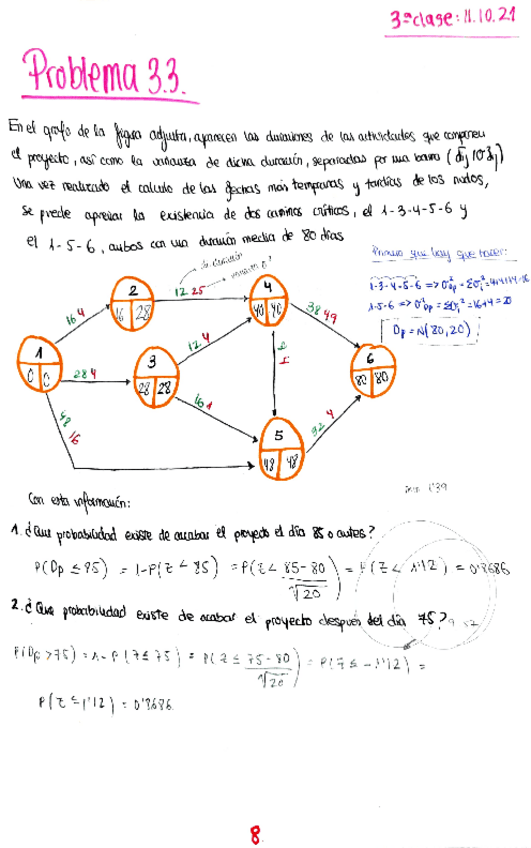 3ª clase: 11.10.21
Problema 3.3.
En el grafo de la figura adjunta, aparecen las duraciones de las actividades que componen
el proyecto, así como la varianza de dicha duración, separadas por una barra
Una vez realizado el calculo de las fechas más tempranas y tardías de los nudos,
se puede apreciar la existencia de dos caminos críticos, el 1-3-4-5-6 y
el 1-5-6, ambos con una duración media de 80 días
Primero que hay que hacer:
1-3-4-5-6 => σ²Dp = Σσi² = 4+4+1+4
1-5-6 => σ²Dp = Σσi² = 16+4 = 20
Dp = N(80,20)
de duración
varianza σ²
2
16 28
12 25
4
40 40
16 4
38 49
1
0 0
28 4
3
28 28
12 4
2
1
6
80 80
48
16
16 1
5
48 48
32 4
Con esta información:
1. ¿Que probabilidad existe de acabar el proyecto el día 85 o antes?
= 1-P(Z < 85) = P(Z < 85-80 / √20) = P(Z < 1'12) = 0'8686
2. ¿Que probabilidad existe de acabar el proyecto después del día 75?
P(Dp > 75) = 1 - P(Z ≤ 75) = P(Z ≤ 75-80 / √20) = P(Z ≤ -1'12) =
P(Z ≤ 1'12) = 0'8686
8